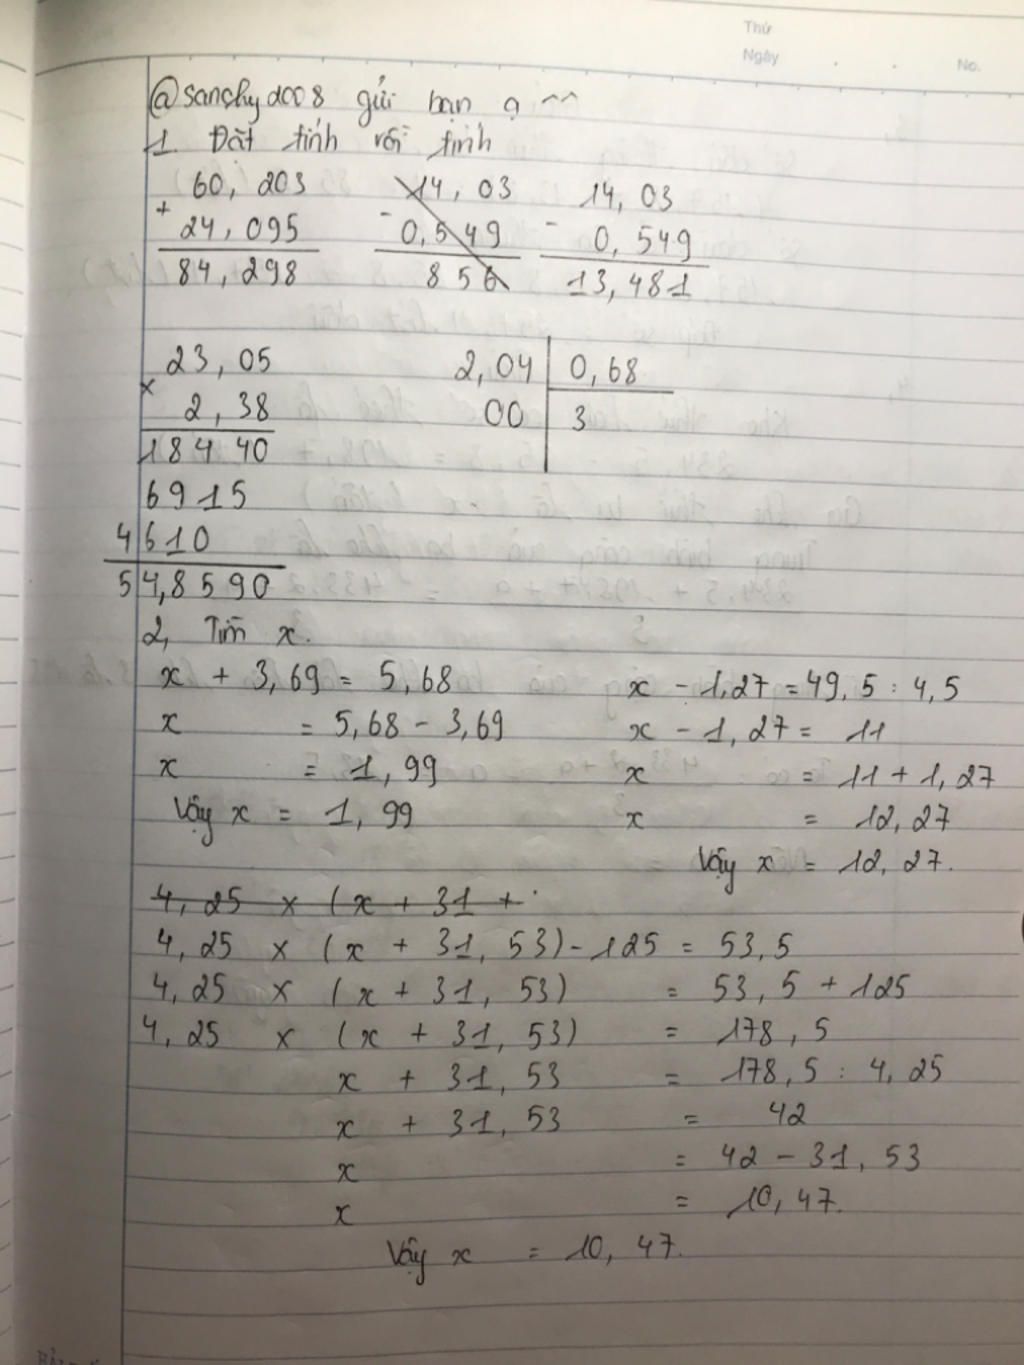 Thứ
Ngày
No.
@sanchy2008 gửi bạn ạ ^^
1. Đặt tính rồi tính
60,203 14,03 14,03
+ - -
24,095 0,549 0,549
84,298 856 13,481
23,05 2,04 0,68
×
2,38 00 3
18440
6915
4610
54,8590
2, Tìm x.
x + 3,69 = 5,68 x - 1,27 = 49,5 : 4,5
x = 5,68 - 3,69 x - 1,27 = 11
x = 1,99 x = 11 + 1,27
Vậy x = 1,99 x = 12,27
Vậy x = 12,27.
4,25 × (x + 31 +
4,25 × (x + 31,53) - 125 = 53,5
4,25 × (x + 31,53) = 53,5 + 125
4,25 × (x + 31,53) = 178,5
x + 31,53 = 178,5 : 4,25
x + 31,53 = 42
x = 42 - 31,53
x = 10,47.
Vậy x = 10,47.